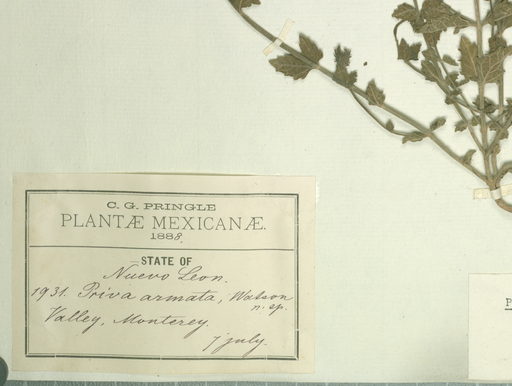 C. G. PRINGLE
PLANTÆ MEXICANÆ.
1888.
STATE OF
Nuevo Leon.
1931. Priva armata, Watson
n. sp.
Valley, Monterey.
7 July.
P